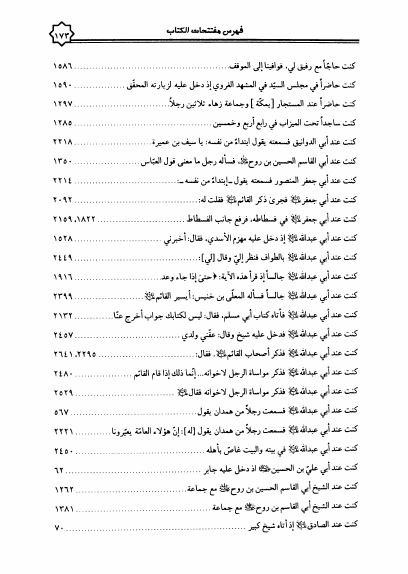 فهرس مفتتحات الكتاب ١٧٣
كنت حاجّاً مع رفيق لي، فوافينا إلى الموقف ١٥٨٦
كنت حاضراً في مجلس السيّد في المشهد الغروي إذ دخل عليه لزيارته المحقّق ١٥٩٠
كنت حاضراً عند المستجار [بمكّة] وجماعة زهاء ثلاثين رجلاً ١٢٩٧
كنت ساجداً تحت الميزاب في رابع أربع وخمسين ١٢٨٥
كنت عند أبي الدوانيق فسمعته يقول ابتداءً من نفسه: يا سيف بن عميرة ٢٢١٨
كنت عند أبي القاسم الحسين بن روح، فسأله رجل ما معنى قول العبّاس ١٣٥٠
كنت عند أبي جعفر المنصور فسمعته يقول ـ إبتداءً من نفسه ـ: ٢٢١٤
كنت عند أبي جعفر فجرى ذكر القائم فقلت له: ٢٠٩٢
كنت عند أبي جعفر في فسطاطه، فرفع جانب الفسطاط ١٨٢٢، ٢١٥٩
كنت عند أبي عبدالله إذ دخل عليه مهزم الأسدي، فقال: أخبرني ١٥٢٨
كنت عند أبي عبدالله بالطواف فنظر إليّ وقال [لي]: ٢٤٤٩
كنت عند أبي عبدالله جالساً إذ قرأ هذه الآية: ﴿حتىٰ إذا جاء وعد ١٩١٦
كنت عند أبي عبدالله جالساً فسأله المعلّى بن خنيس: أيسير القائم ٢٣٩٩
كنت عند أبي عبدالله فأتاه كتاب أبي مسلم، فقال: ليس لكتابك جواب أخرج عنّا ٢١٣٢
كنت عند أبي عبدالله فدخل عليه شيخ وقال: عقّني ولدي ٢٤٥٧
كنت عند أبي عبدالله فذكر أصحاب القائم، فقال: ٢٢٩٥، ٢٦٤١
كنت عند أبي عبدالله فذكر مواساة الرجل لاخوانه... إنّما ذلك إذا قام القائم ٢٤٨٠
كنت عند أبي عبدالله فذكر مواساة الرجل لاخوانه فقال ٢٥٢٩
كنت عند أبي عبدالله فسمعت رجلاً من همدان يقول ٥٦٧
كنت عند أبي عبدالله فسمعت رجلاً من همدان يقول [له]: إنّ هؤلاء العامّة يعيّرونا ٢٢٢١
كنت عند أبي عبدالله في بيته والبيت غاصّ بأهله ٢٤٥٠
كنت عند أبي عليّ بن الحسين اذ دخل عليه جابر ٦٢
كنت عند الشيخ أبي القاسم الحسين بن روح مع جماعة ١٢٦٢
كنت عند الشيخ أبي القاسم بن روح مع جماعة ١٣٨١
كنت عند الصادق إذ أتاه شيخ كبير ٧٠